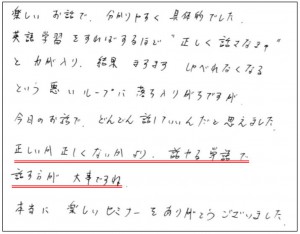 楽しい お話で、分かりやすく 具体的でした。
英語学習 をすればするほど "正しく 話さなきゃ"
と 力が入り、結果 ますます しゃべれなくなる
という 悪い ループに 落ち入りがちですが
今日のお話で、どんどん話していいんだと思えました。
正しいか 正しくないか より、話せる 単語で
話す方が 大事ですね。
本当に 楽しいセミナーを ありがとうございました。